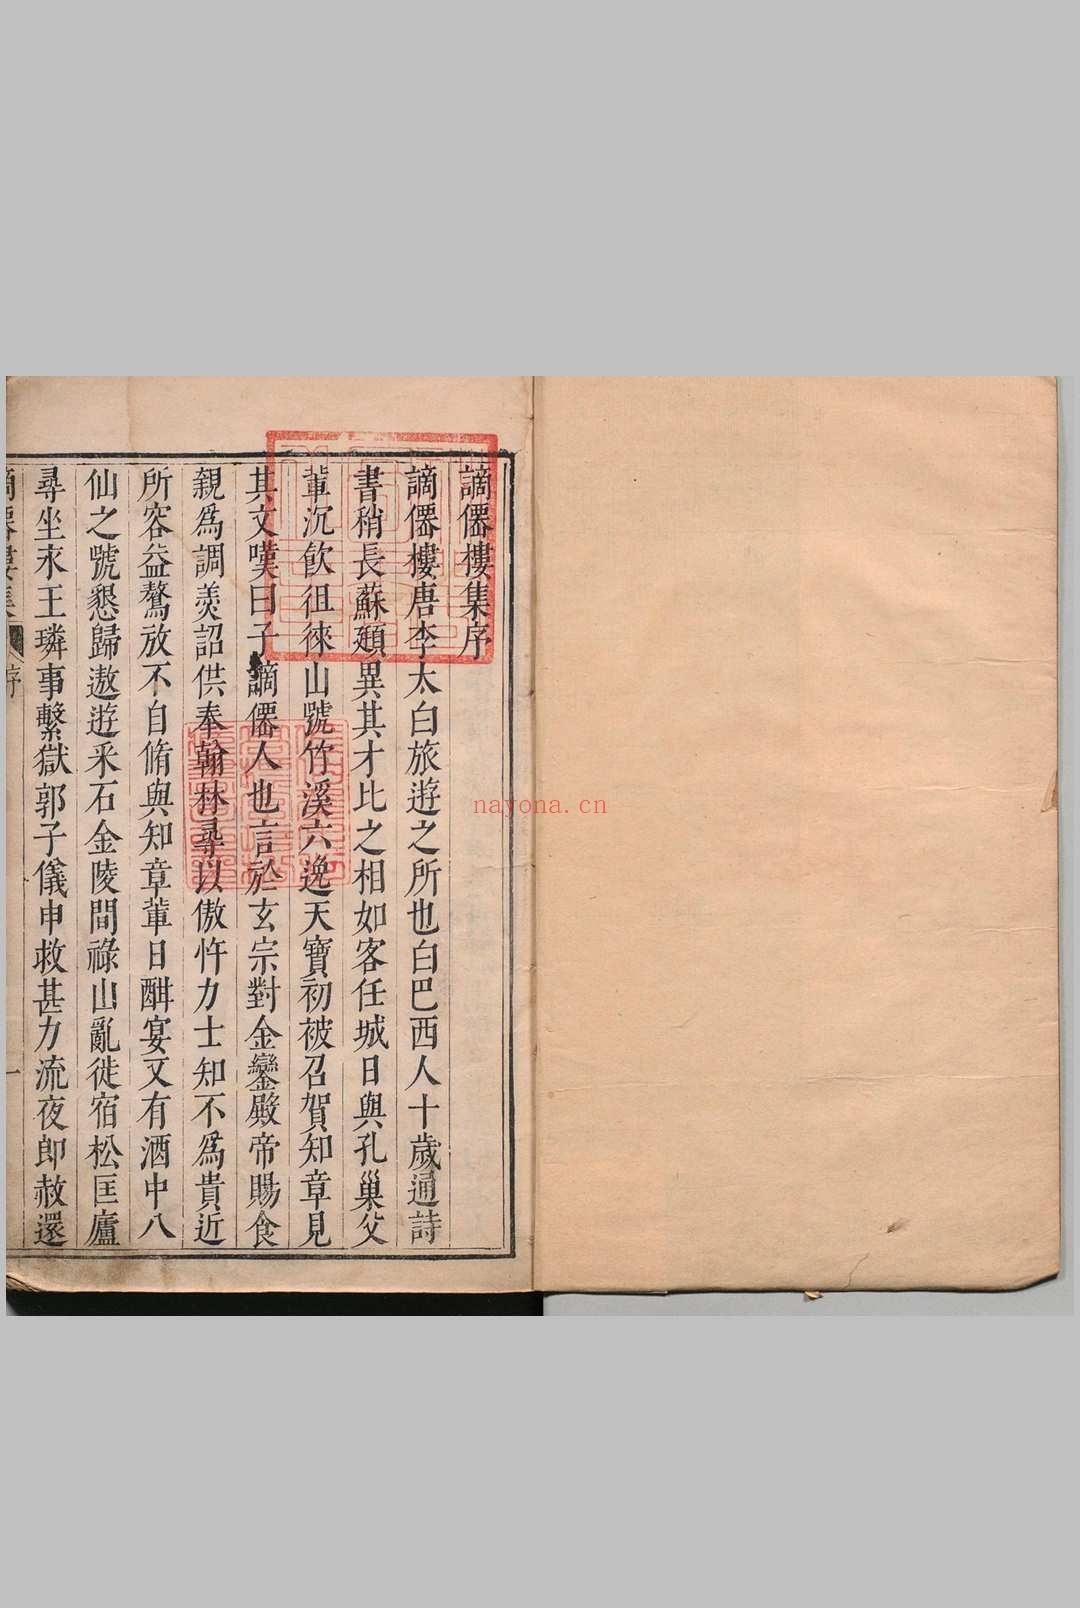 謫僊樓集序
謫僊樓唐李太白旅遊之所也白巴西人十歲通詩
書稍長蘇頲異其才比之相如客任城日與孔巢父
軰沉飲徂徠山號竹溪六逸天寶初被召賀知章見
其文嘆曰子謫僊人也言於玄宗對金鑾殿帝賜食
親爲調羮詔供奉翰林尋以傲忤力士知不爲貴近
所容益驁放不自脩與知章軰日酣宴又有酒中八
仙之號懇歸遨遊采石金陵間祿山亂徙宿松匡廬
尋坐永王璘事繫獄郭子儀申救甚力流夜郎赦還
序
一
nayona.cn